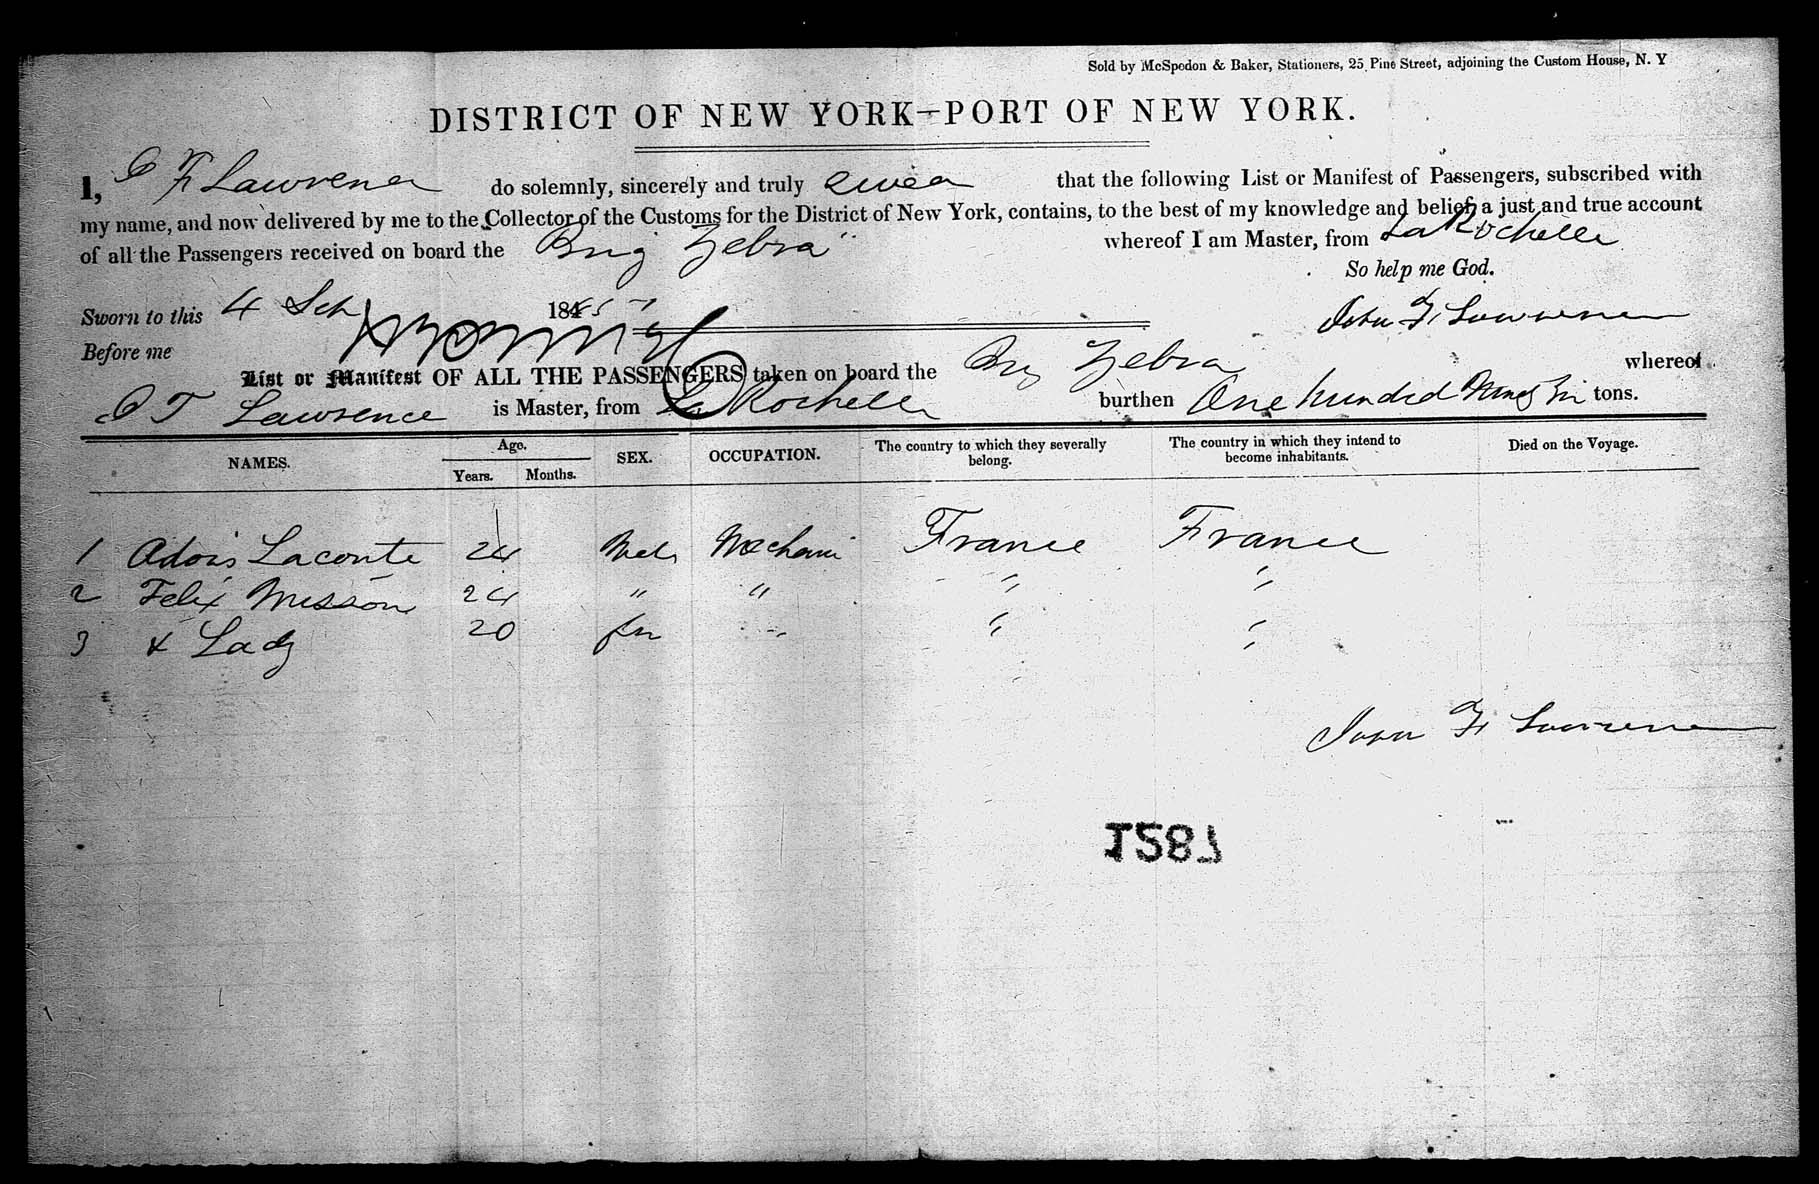 Sold by McSpedon & Baker, Stationers, 25 Pine Street, adjoining the Custom House, N. Y
DISTRICT OF NEW YORK—PORT OF NEW YORK.
I, J F Lawrence do solemnly, sincerely and truly swear that the following List or Manifest of Passengers, subscribed with
my name, and now delivered by me to the Collector of the Customs for the District of New York, contains, to the best of my knowledge and belief, a just and true account
of all the Passengers received on board the Brig Zebra whereof I am Master, from La Rochelle
So help me God.
Sworn to this 4 184
John F Lawrence
Before me
List or Manifest OF ALL THE PASSENGERS taken on board the Brig Zebra whereof
J F Lawrence is Master, from La Rochelle burthen One hundred tons.
NAMES. Age. Years. Months. SEX. OCCUPATION. The country to which they severally belong. The country in which they intend to become inhabitants. Died on the Voyage.
1 Adois Laconte 24 Male Mechanic France France
2 Felix Misson 24 " " " "
3 & Lady 20 fem " " "
John F Lawrence
1821